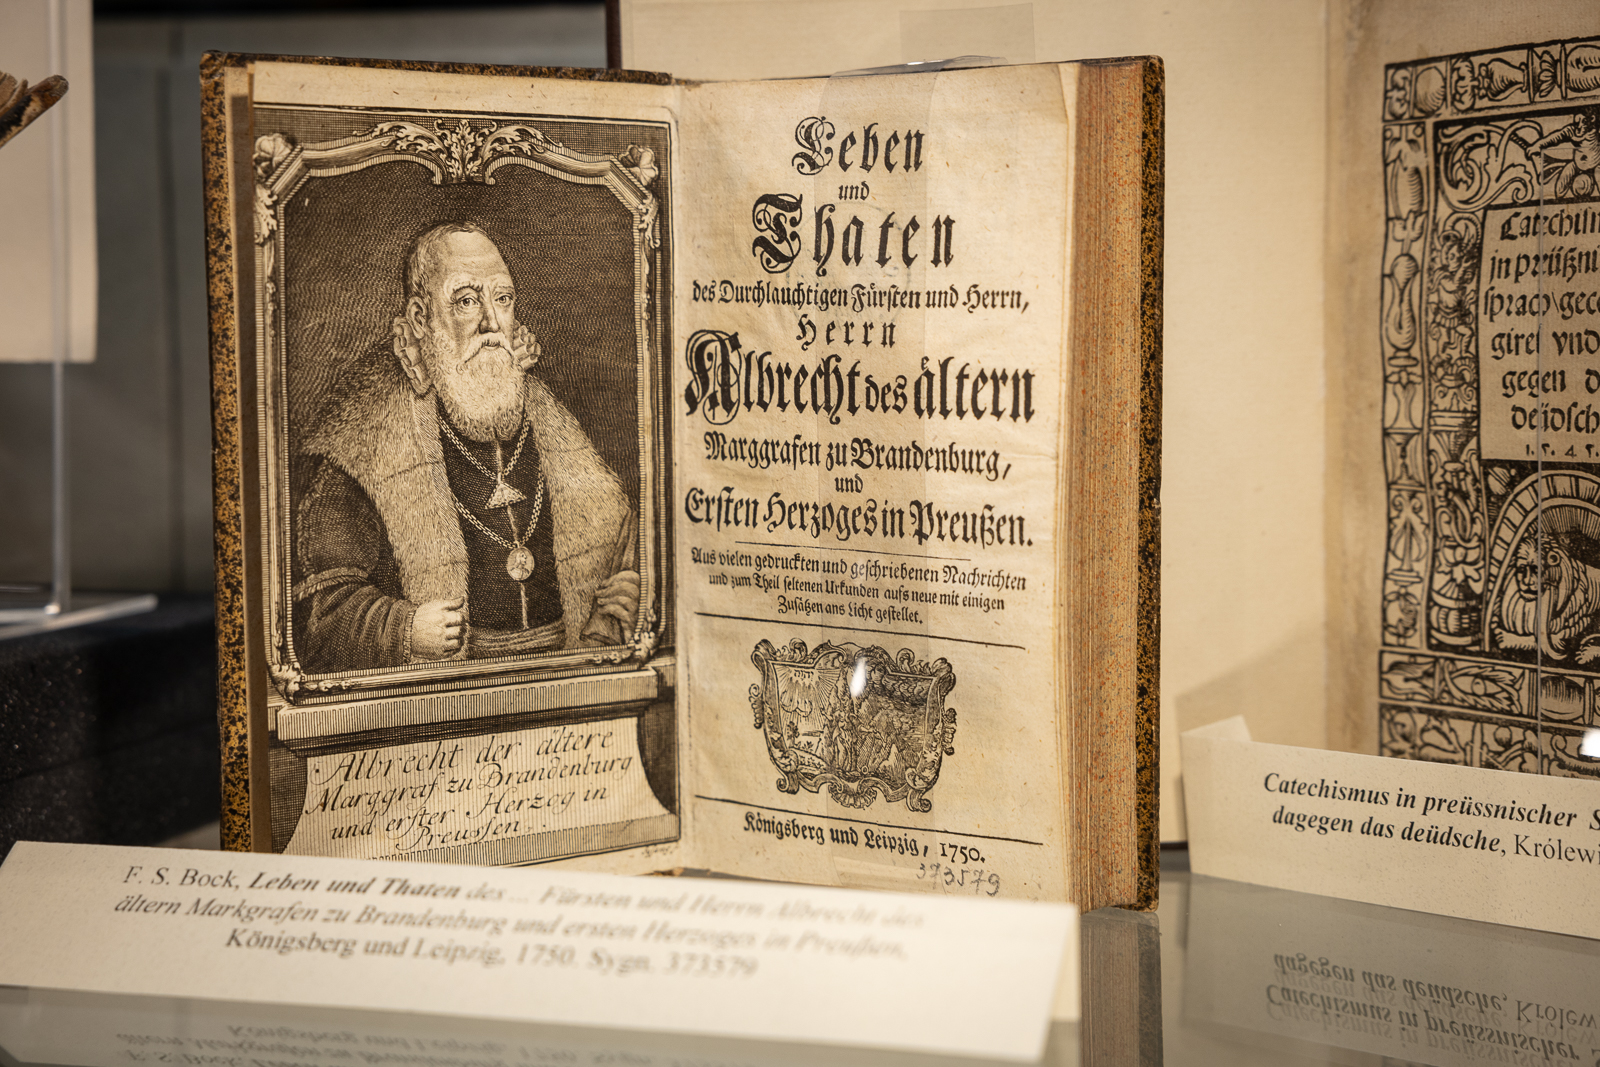 Leben
und
Thaten
des Durchlauchtigen Fürsten und Herrn,
Herrn
Albrecht des ältern
Marggrafen zu Brandenburg,
und
Ersten Herzoges in Preußen.
Aus vielen gedruckten und geschriebenen Nachrichten
und zum Theil seltenen Urkunden aufs neue mit einigen
Zusätzen ans Licht gestellet.
Königsberg und Leipzig, 1750.
373579
Albrecht der ältere
Marggraf zu Brandenburg
und erster Herzog in
Preussen.
F. S. Bock, Leben und Thaten des... Fürsten und Herrn Albrecht des
ältern Markgrafen zu Brandenburg und ersten Herzoges in Preußen,
Königsberg und Leipzig, 1750. Sygn. 373579
Catechism
jn preüßni
sprach
giret vnd
gegen
deüdsch
Catechismus in preüssnischer S
dagegen das deüdsche, Królewi